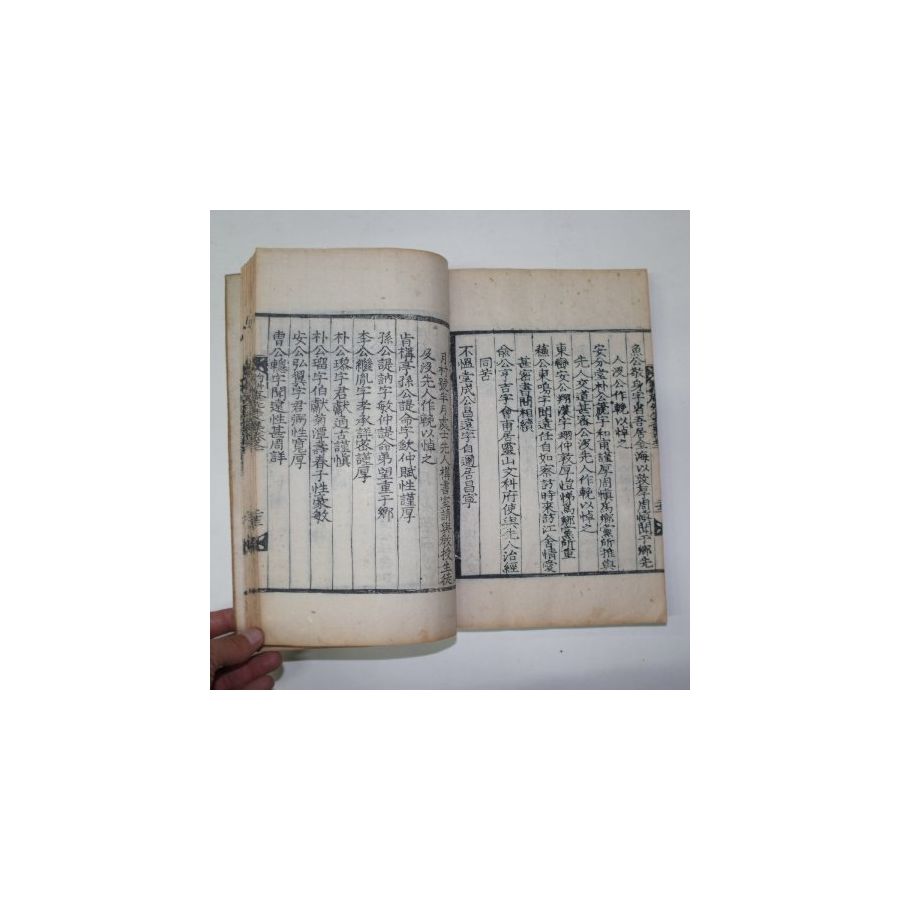 魚公敬身字省吾居金海以敦厚周愼聞于鄕先
人沒公作輓以悼之
安公 朴公 字和甫謹厚周愼爲鄕黨所推與
先人交道甚密公沒先人作輓以悼之
東巒安公翔漢字翊仲敦厚愷悌爲鄕黨所重
公東鳴字聞遠任自如察訪時來訪江舍情愛
甚密書問相續
兪公亨吉字會甫居靈山文科府使與先人治經
同苦
不慍堂成公昌遠字自邇居昌寧
月 號半月處士先人構書室請與敎授生徒
及沒先人作輓以悼之
肯構亭孫公諟命字欽仲賦性謹厚
孫公諟訥字敏仲諟命弟望重于鄕
李公繼胤字孝承詳密謹厚
朴公 字君獻過古謹愼
朴公瑠字伯獻菊潭壽春子性豪敏
安公弘翼字君 性寬厚
曹公 字聞遠性甚周詳